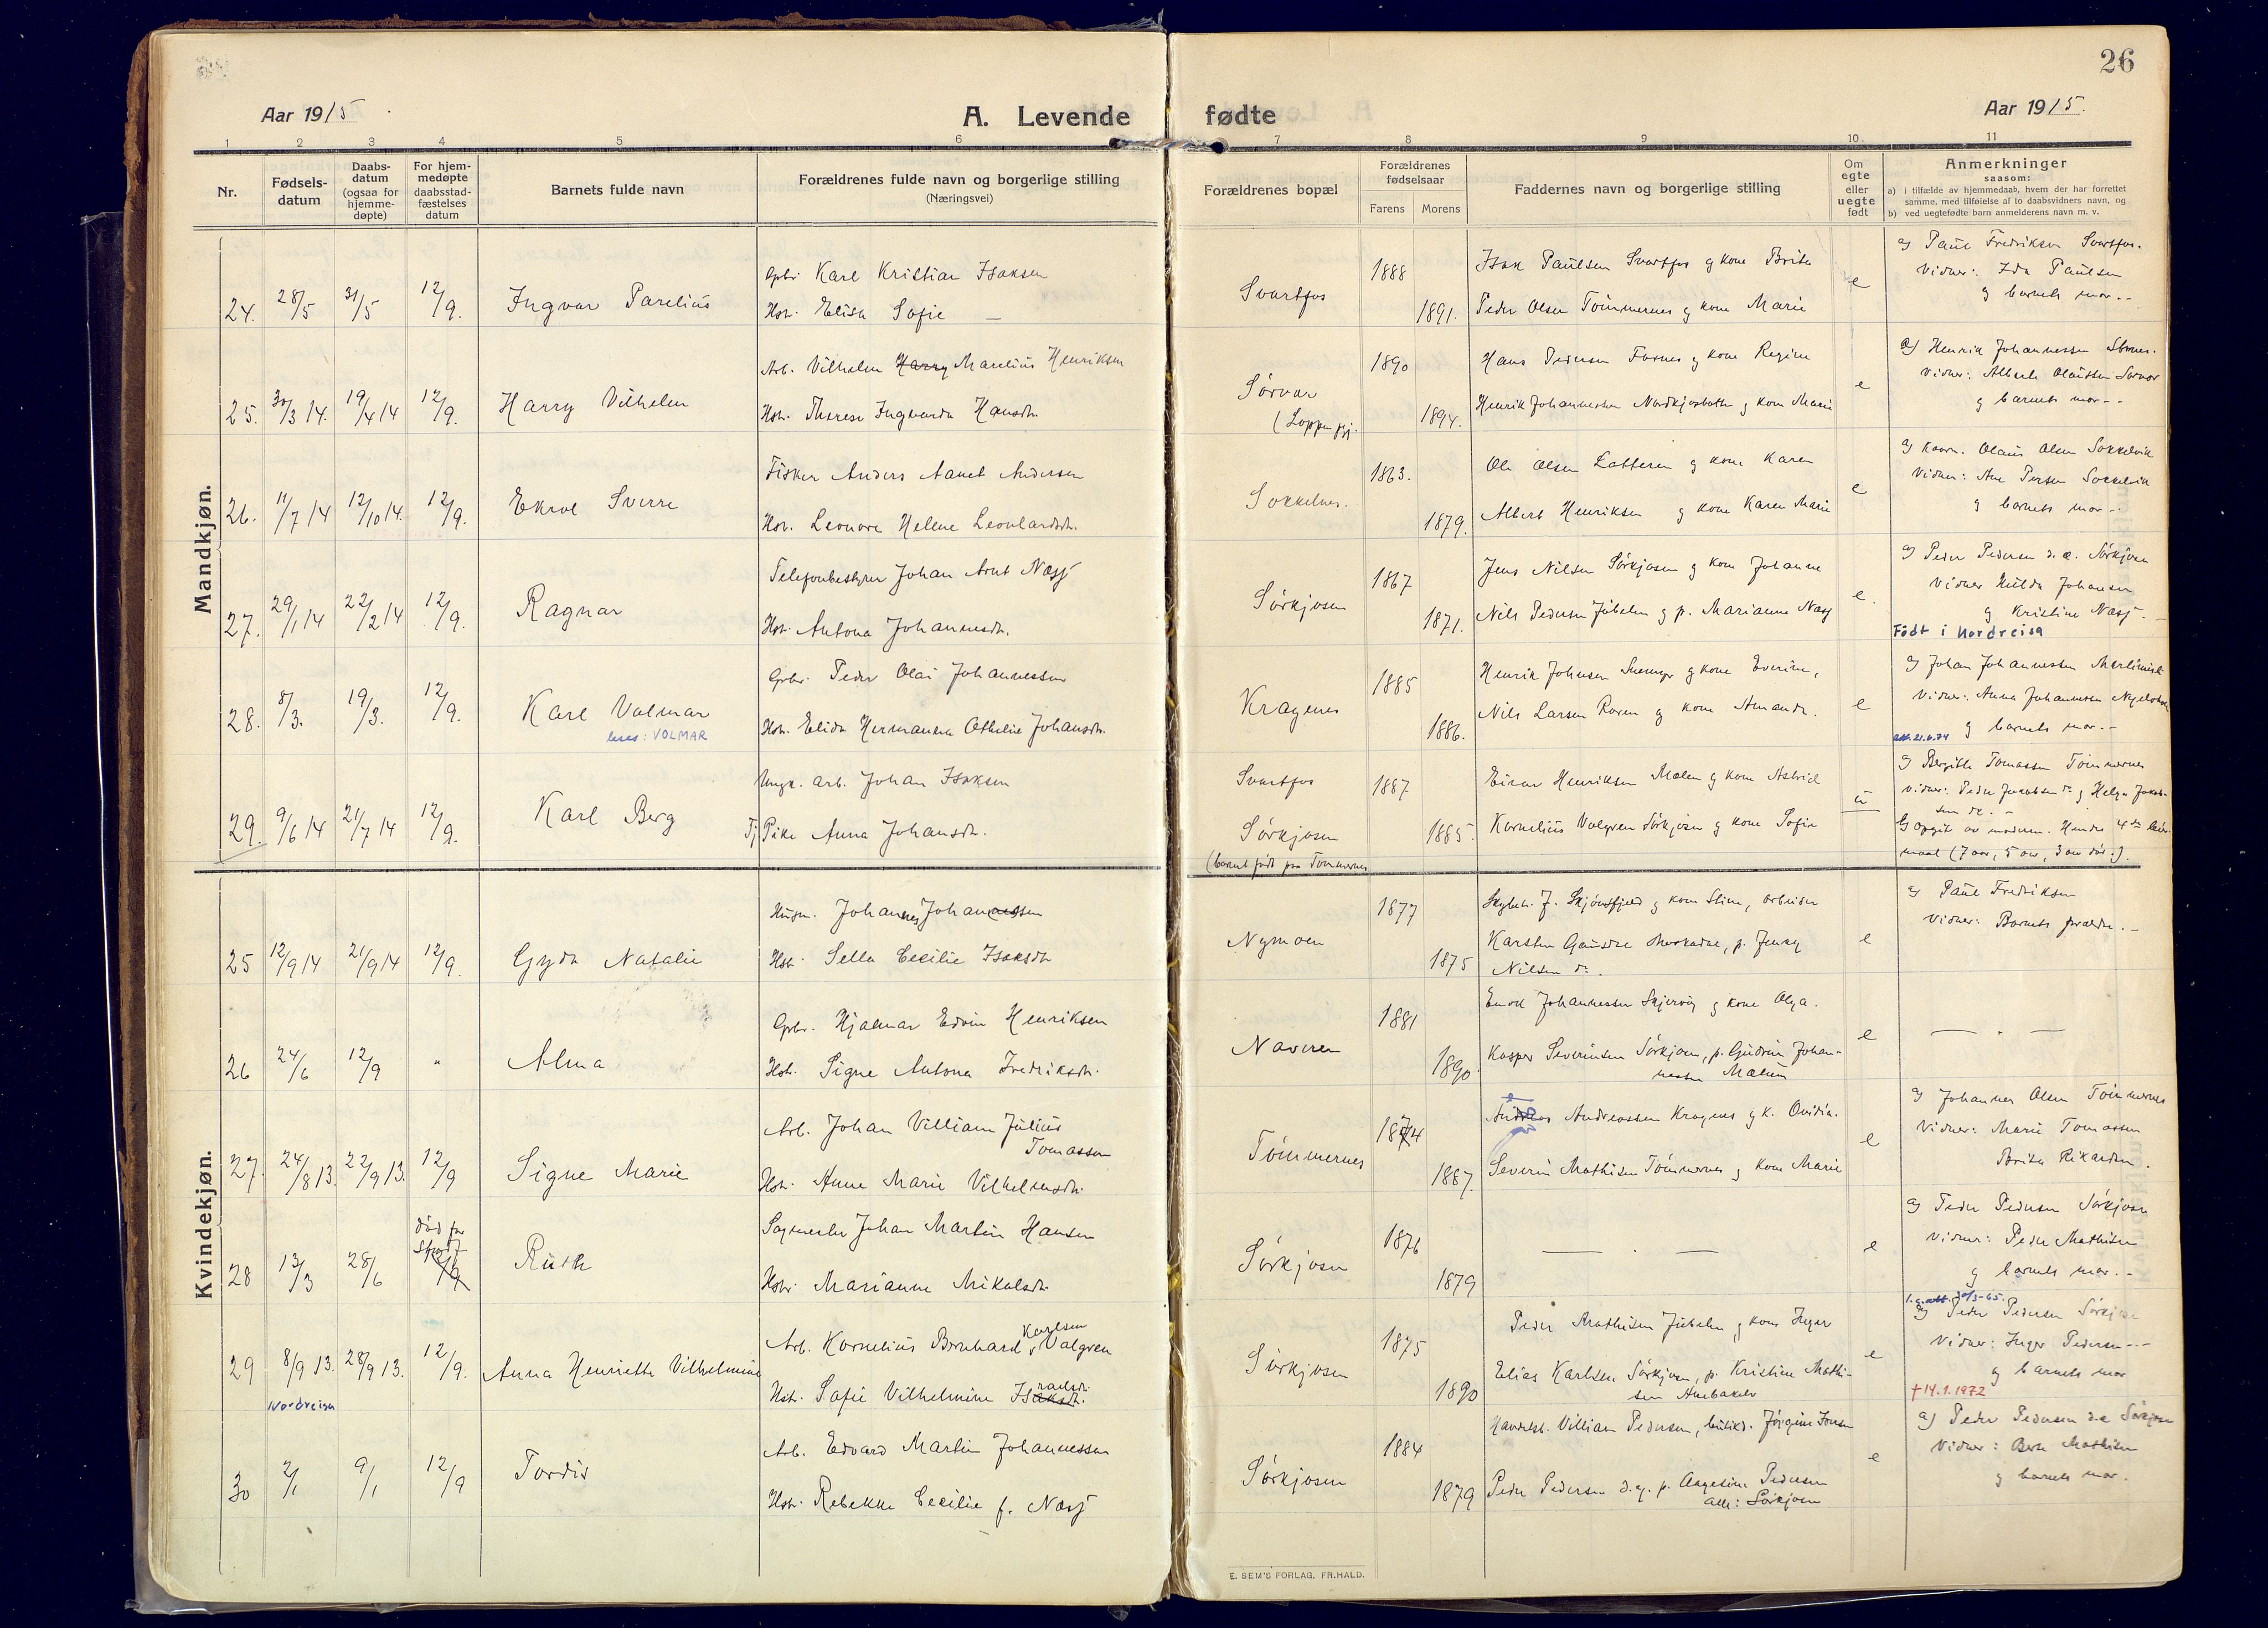 26
Aar 1915
A. Levende fødte
Aar 1915.
1 2 3 4 5 6 7 8 9 10. 11
Nr.
Fødsels-
datum
Daabs-
datum
(ogsaa for
hjemme-
døpte)
For hjem-
medøpte
daabsstad-
fæstelses
datum
Barnets fulde navn
Forældrenes fulde navn og borgerlige stilling
(Næringsvei)
Forældrenes bopæl
Forældrenes
fødselsaar
Farens Morens
Faddernes navn og borgerlige stilling
Om
egte
eller
uegte
født
Anmerkninger
saasom:
a) i tilfælde av hjemmedaab, hvem der har forrettet
samme, med tilføielse af to daabsvidners navn, og
b) ved uegtefødte barn anmelderens navn m. v.
Mandkjøn.
24. 28/5 31/5 12/9. Ingvar Parelius
Gbr. Karl Kristian Isaksen
Hst. Elisa Sofie —
Svartfos 1888 1891.
Isak Paulsen Svartfos g kone Brita
Peder Olsen Tømmernes g kone Marie
e
a) Paul Fredriksen Svartfos.
Vidner: Ida Paulsen
g barnets mor.-
25. 30/3 14. 19/4 14 12/9. Harry Vilhelm
Arb. Vilhelm Harry Marelius Henriksen
Hst. Therese Ingvarda Hansdtr.
Sørvær
(Loppen pgj.
1890 1894.
Hans Pedersen Fosnes g kone Regine
Henrik Johannessen Nordkjosbotn g kone Marie
e
a) Henrik Johannessen
Vidner: Olaussen Sørvær
g barnets mor.-
26. 11/7 14 12/10 14. 12/9. Ekrol Sverre
Fisker Anders Aanet Andersen
Hst. Leonore Helene Leonhardsdtr.
Sokkelnes. 1863. 1879.
Ole Olsen Latteren g kone Karen
Albert Henriksen g kone Karen Marie
e
a) Olaus Olsen Sokkelvik
Vidner: Ane Persen Sokkelvik
g barnets mor.-
27. 29/1 14 22/2 14 12/9. Ragnar
Telefonbestyrer Johan Arnt Næsj
Hst. Antona Johannesdtr.
Sørkjosen 1867 1871.
Jens Nilsen Sørkjosen g kone Johanne
Nils Pedersen Jubelen g p. Marianne Næsj
e.
a) Peder Pedersen d.æ. Sørkjosen
Vidner Hulda Johansen
g Kristine Næsj.-
Født i Nordreisa
28. 8/3. 19/3. 12/9. Karl Valmar
leses: VOLMAR
Gbr. Peder Olai Johannessen
Hst. Elida Hermanda Othelie Johansdtr.
Kragenes 1885 1886.
Henrik Johnsen g kone Everine,
Nils Larsen Raven g kone Amanda.
e
a) Johan Johannessen
Vidner: Anna Johannessen
g barnets mor.-
29. 9/6 14 21/7 14 12/9. Karl Berg
Ungk. arb. Johan Isaksen
Tj Pike Anna Johansdtr.
Svartfos
Sørkjosen
(barnet født paa Tømmernes
1887 1885.
Einar Henriksen Mælen g kone Astrid
Kornelius Valgren Sørkjosen g kone Sofie
u
a) Bergitte Tomassen Tømmernes
Vidner: Peder Jakobsen do g Helga Jakob-
sen do. -
b) opgit av moderen. Hendes 4de leier-
maal (7 aar, 5 aar, 3 aar død).
Kvindekjøn.
25 12/9 14 21/9 14 12/9. Gyda Natalie
Husm. Johannes Johannessen
Hst. Sella Cecilie Isaksdtr
Nymoen 1877 1875
Skybet. J. Skjønsfjeld g kone Stine, arbeider
Karsten p. Jenny
Nilsen do.
e
a) Paul Fredriksen
Vidner: Barnets forældre.-
26 24/6 12/9 " Alma
Gbr. Hjalmar Edvin Henriksen
Hst. Signe Antona Fredriksdtr.
Naveren 1881 1890.
Enok Johannessen Skjervøy g kone Olga.
Kasper Severinsen Sørkjosen, p. Gudrun Johan-
nessen Mælen
e
— . —
27. 24/8 13. 22/9 13. 12/9 Signe Marie
Arb. Johan Villiam Julius
Tomassen
Hst. Anne Marie Vilhelmsdtr.
Tømmernes 1874 1887.
Andreas Andreassen Kragnes g k. Ovidia.
Severin Mathisen Tømmernes g kone Marie
e
a) Johannes Olsen Tømmernes
Vidner: Marie Tomassen
Brita Rikardsen.
28 13/3 28/6 død før
12/9
Ruth
Sagmester Johan Martin Hansen
Hst. Marianne Mikalsdtr.
Sørkjosen 1876 1879
— . —
e
a) Peder Pedersen Sørkjosen
Vidner: Peder Mathisen
g barnets mor.-
29 8/9 13. 28/9 13. 12/9. Anna Henriette Vilhelmine
Nordreisa
Arb. Kornelius Bernhard Karlsen Valgren
Hst. Sofie Vilhelmine Isaksdtr. raelsdtr.
Sørkjosen 1875 1890
Peder Mathisen Jubelen g kone Inger
Elias Karlsen Sørkjosen, p. Kristine Mathi-
sen
e
a) Peder Pedersen Sørkjosen
Vidner: Inger Pedersen -
g barnets mor
† 14.1.1972
30 2/1 9/1 12/9 Tordis
Arb. Edvard Martin Johannessen
Hst. Rebekka Cecilie f. Næsj
Sørkjosen 1884 1879
Handelsb. Villiam Pedersen, butikd. Jørgine Jonsen
Peder Pedersen d.y. p. Angeline Pedersen
alle: Sørkjosen
e
a) Peder Pedersen d.æ Sørkjosen
Vidner: Mathisen
g barnets mor.
E. SEM'S FORLAG, FR.HALD.